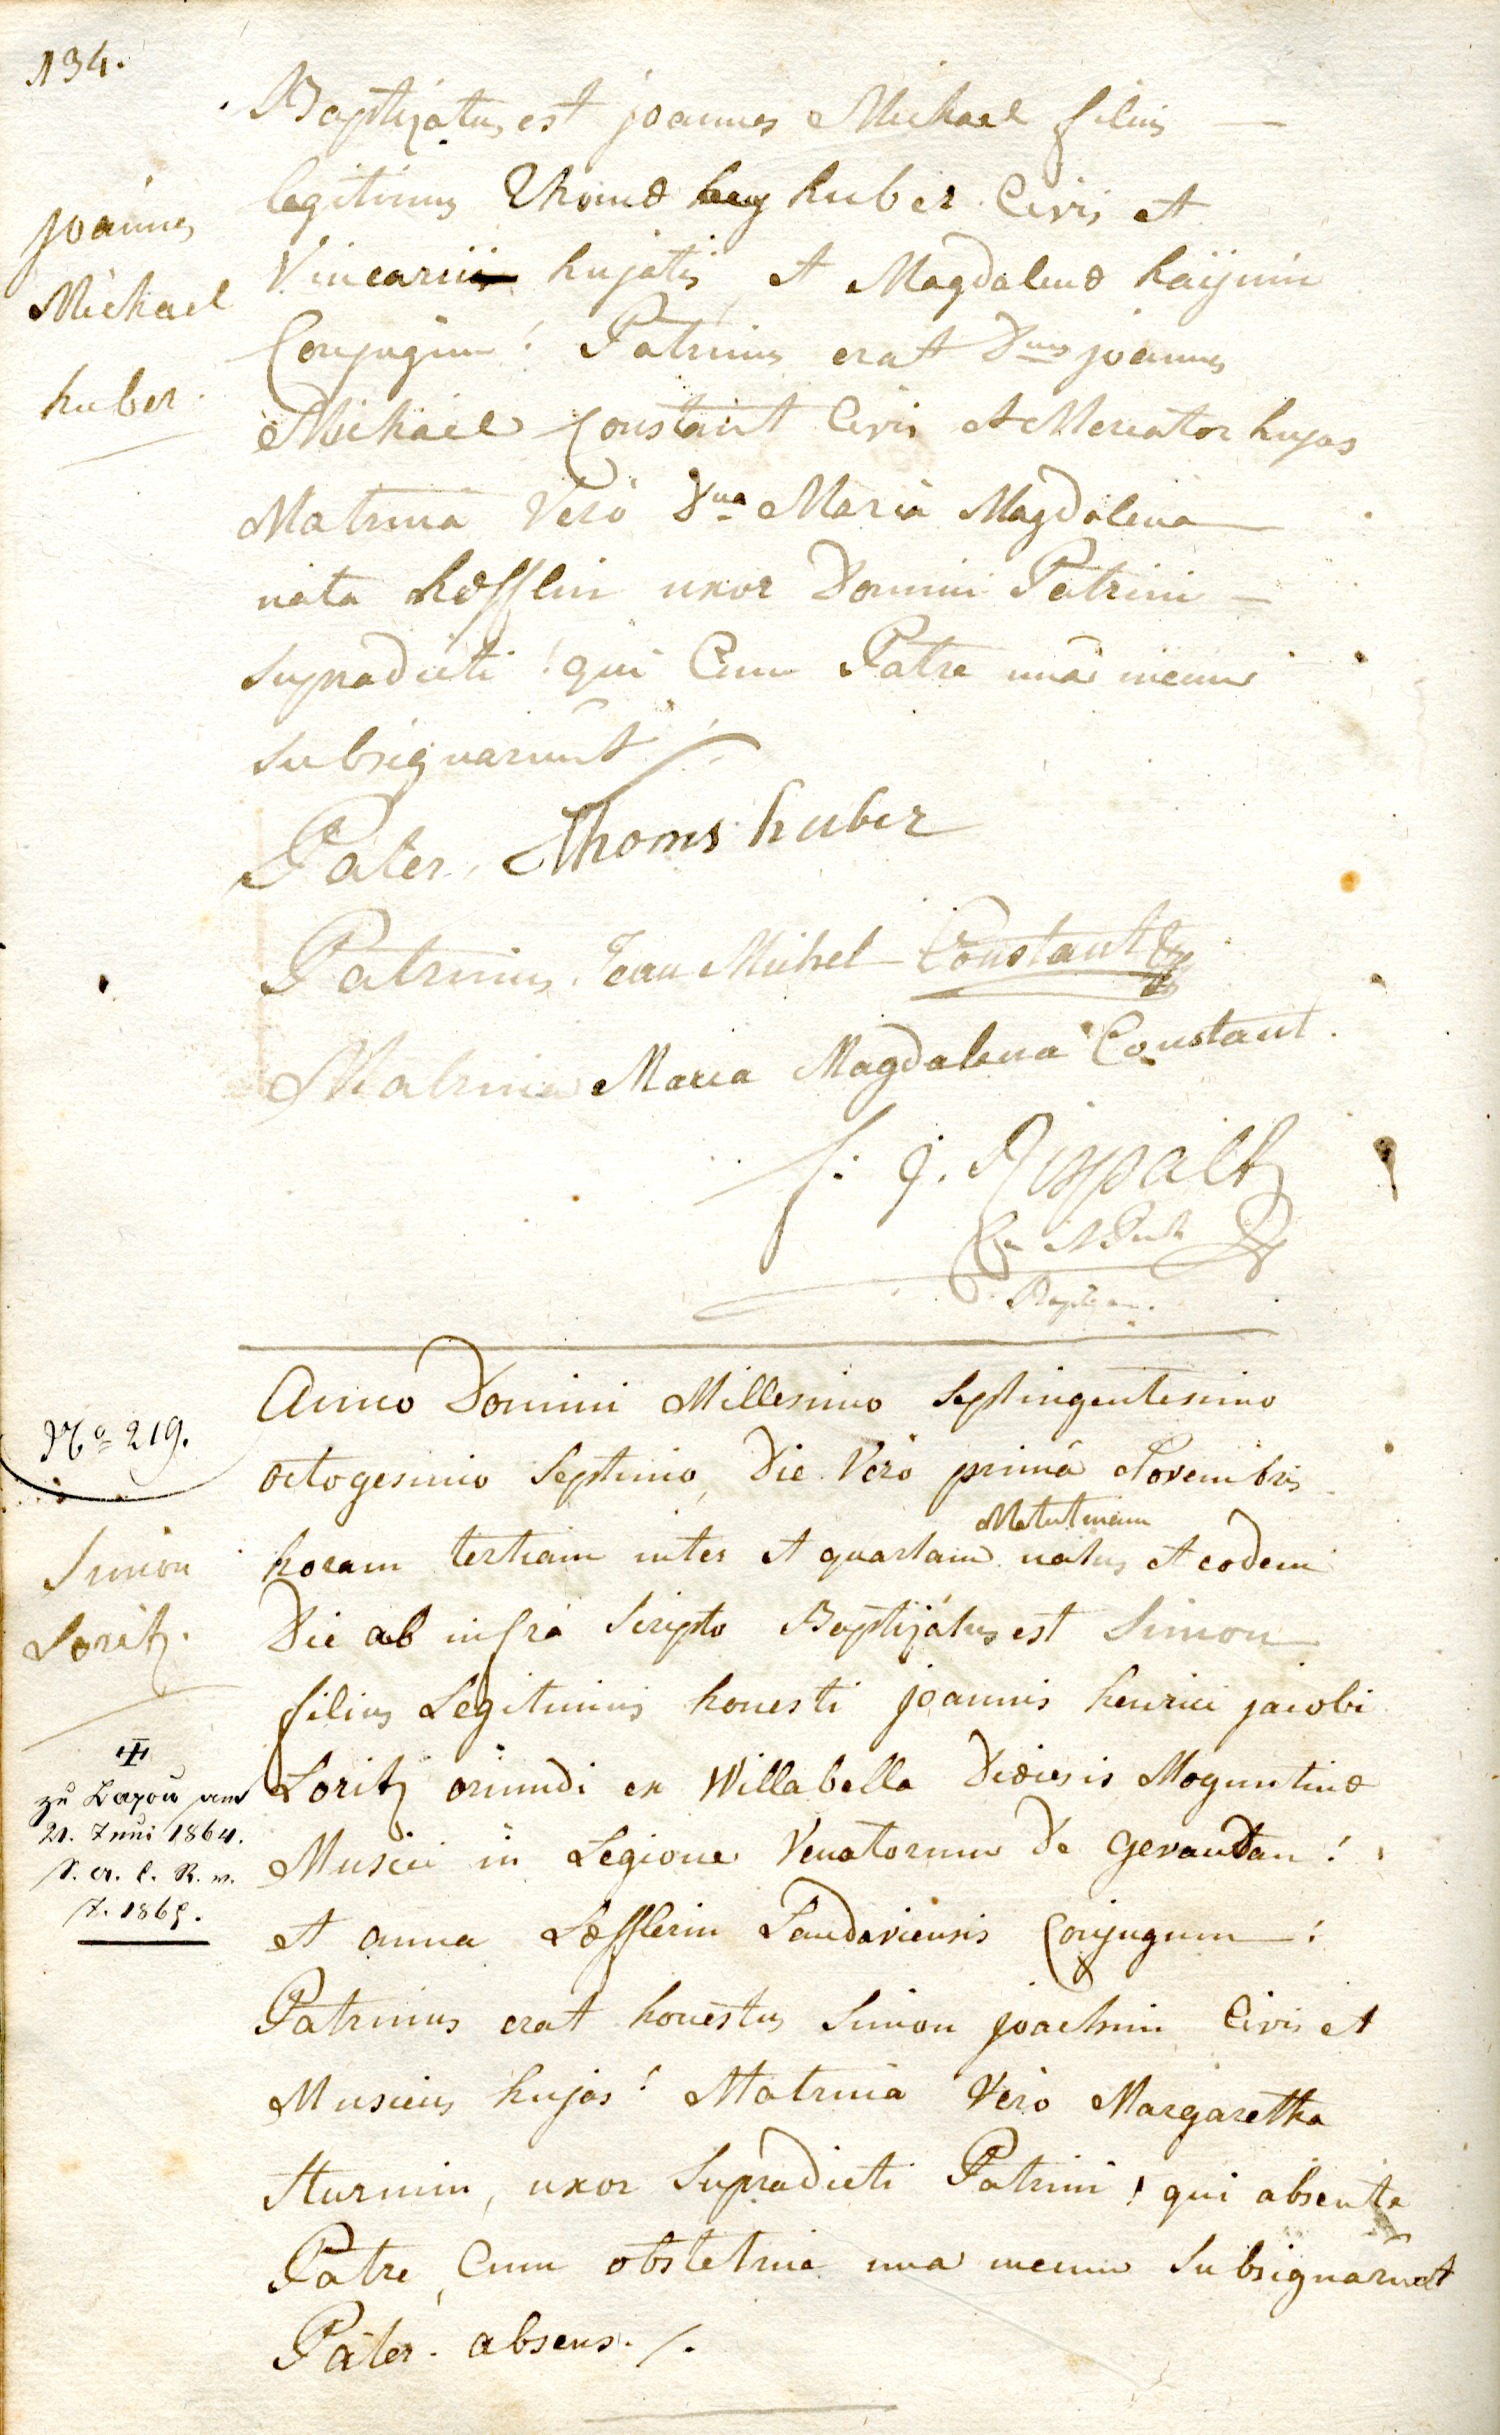 134.
Baptizatus est joannes Michael filius
legitimus Thomæ huber Civis et
Vinearii hujatis et Magdalenæ
Conjugum! Patrinus erat Dnus joannes
Michael Constant Civis et Mercator hujas
Matrina Verò Dna Maria Magdalena
nata hœfflin uxor Domini Patrini
supradicti! qui Cum Patre unà mecum
subsignarunt
joannes
Michael
huber.
Pater. Thoms huber
Patrinus. Jean Michel Constant
Matrina Maria Magdalena Constant.
Anno Domini Millesimo Septingentesimo
octogesimo Septimo, Die Verò primâ Novembris
Matutinam
horam tertiam inter et quartam natus et eodem
Die ab infrà Scripto Baptizatus est Simon
filius Legitimus honesti joannis henrici jacobi
Loritz oriundi ex Willabella Diœcesis Moguntinæ
Musici in Legione Venatorum De gevaudan!
et anna Lœfflerin Landaviensis Conjugum!
Patrinus erat honestus Simon joachim Civis et
Musicus hujas! Matrina Verò Margaretha
Sturmin, uxor Supradicti Patrini! qui absente
Patre, Cum obstetrice una mecum Subsignarunt
Pater. absens. /.
No 219.
Simon
Loritz.
zu am
21. Juni 1864.